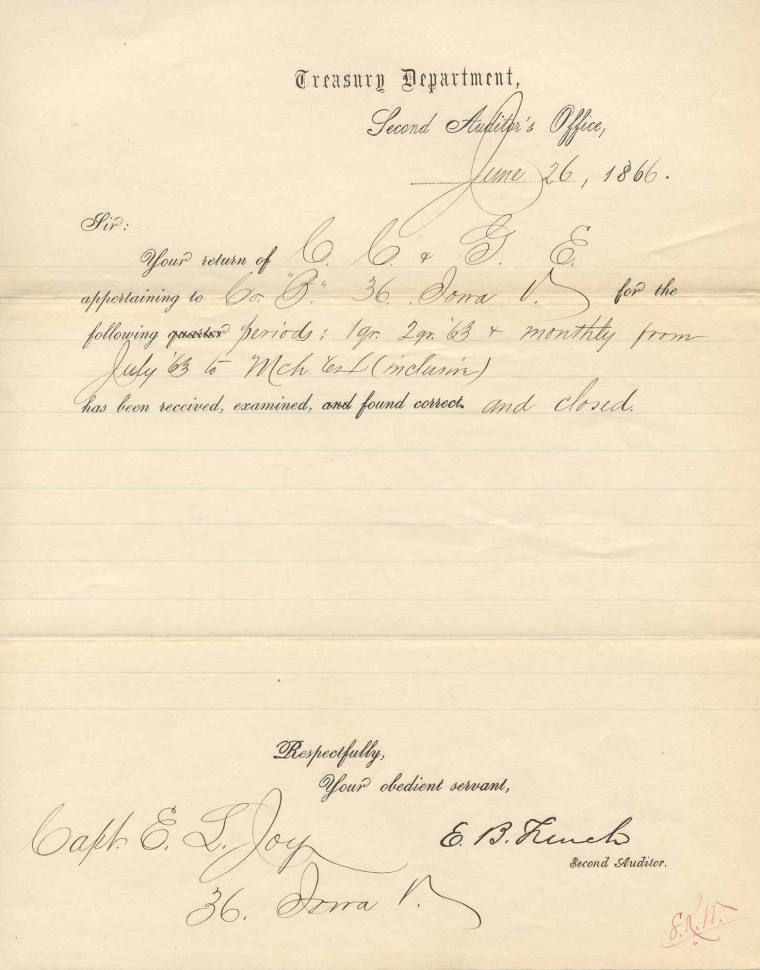 Treasury Department,
Second Auditor's Office,
June 26, 1866.
Sir:
Your return of C. C. & G. E.
appertaining to Co. "B." 36. Iowa V. for the
following quarter periods: 1 qr. 2 qr. '63 & monthly from
July '63 to Mch. (inclusive)
has been received, examined, and found correct. and closed.
Respectfully,
Your obedient servant,
E. B. French
Second Auditor.
Capt. E. L. Joy
36. Iowa V.